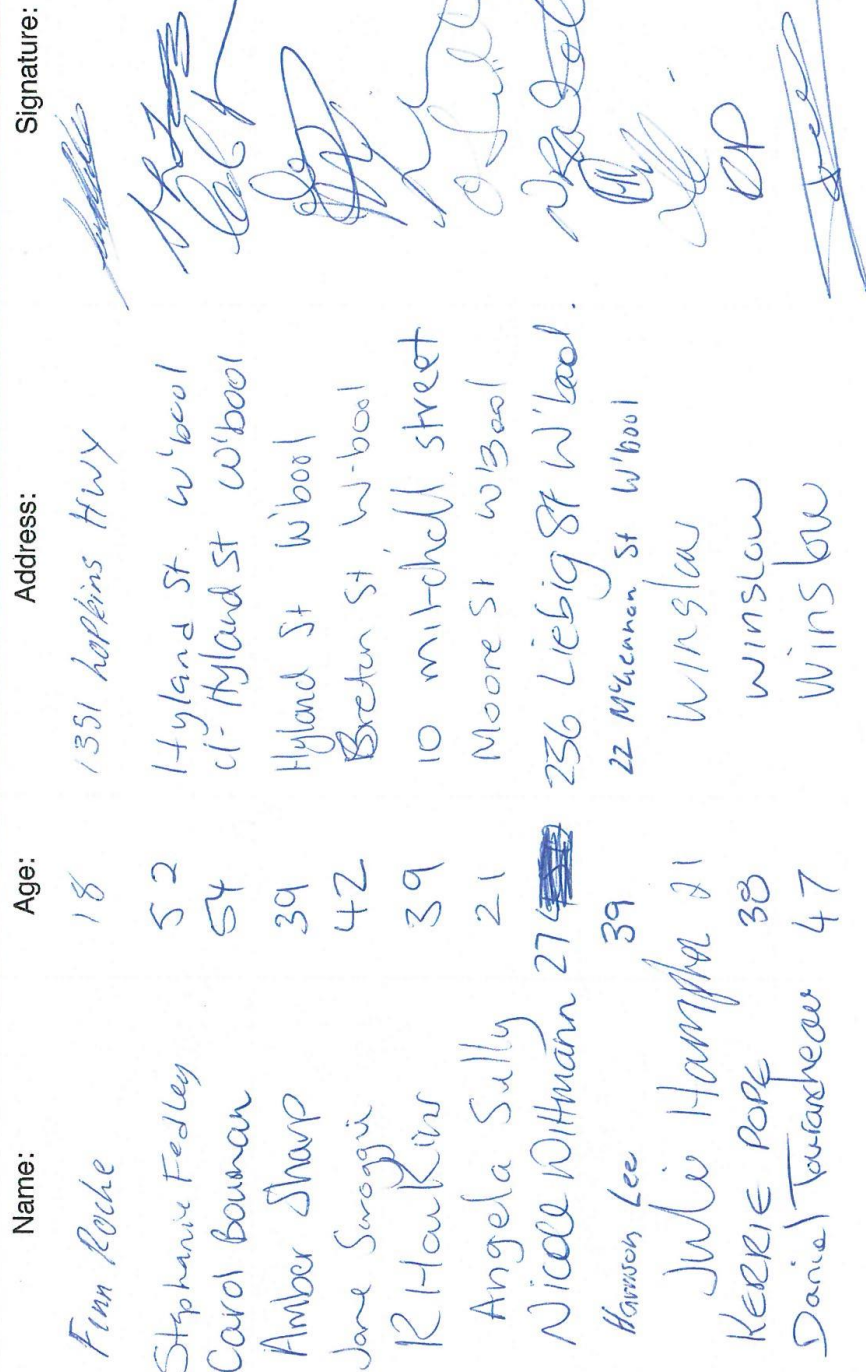 Name: Age: Address: Signature:
Finn Roche 18 1351 hopkins HWY
Stephanie Fedley 52 Hyland St. W'bool
Carol Bowman 54 Hyland St W'bool
Amber Sharp 39 Hyland St W'bool
Jane 42 Breton St W-bool
R Hawkins 39 10 mitchell street
Angela Sully 21 Moore St W'Bool
Nicole Wittmann 27 236 Liebig St W'bool.
Harrison Lee 39 22 McKennan St W'bool
Julie 21 Winslow
KERRIE POPE 38 WINSLOW KP
Daniel 47 Winslow